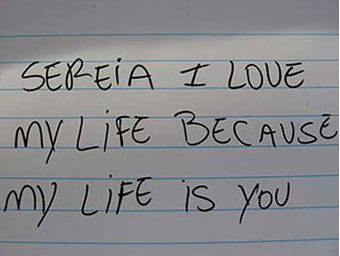 SEREiA I LOVE
MY LiFE BECAUSE
MY LiFE iS YOU